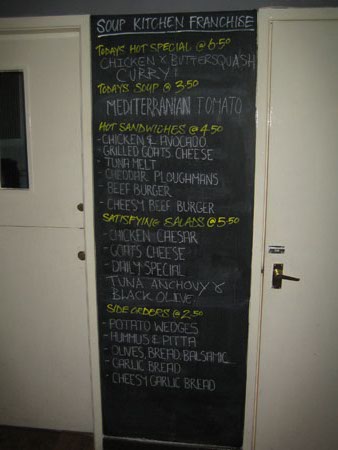 SOUP KITCHEN FRANCHISE
TODAYS HOT SPECIAL @ 6.50
CHICKEN & BUTTERSQUASH
CURRY
TODAYS SOUP @ 3.50
MEDITERRANIAN TOMATO
HOT SANDWICHES @ 4.50
- CHICKEN & AVOCADO
- GRILLED GOATS CHEESE
- TUNA MELT
- CHEDDAR PLOUGHMANS
- BEEF BURGER
- CHEESY BEEF BURGER
SATISFYING SALADS @ 5.50
- CHICKEN CAESAR
- GOATS CHEESE
- DAILY SPECIAL
TUNA ANCHONY &
BLACK OLIVE
SIDE ORDERS @ 2.50
- POTATO WEDGES
- HUMMUS & PITTA
- OLIVES, BREAD, BALSAMIC
- GARLIC BREAD
- CHEESY GARLIC BREAD